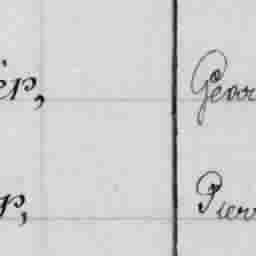 ier, Geor
r, Pierr